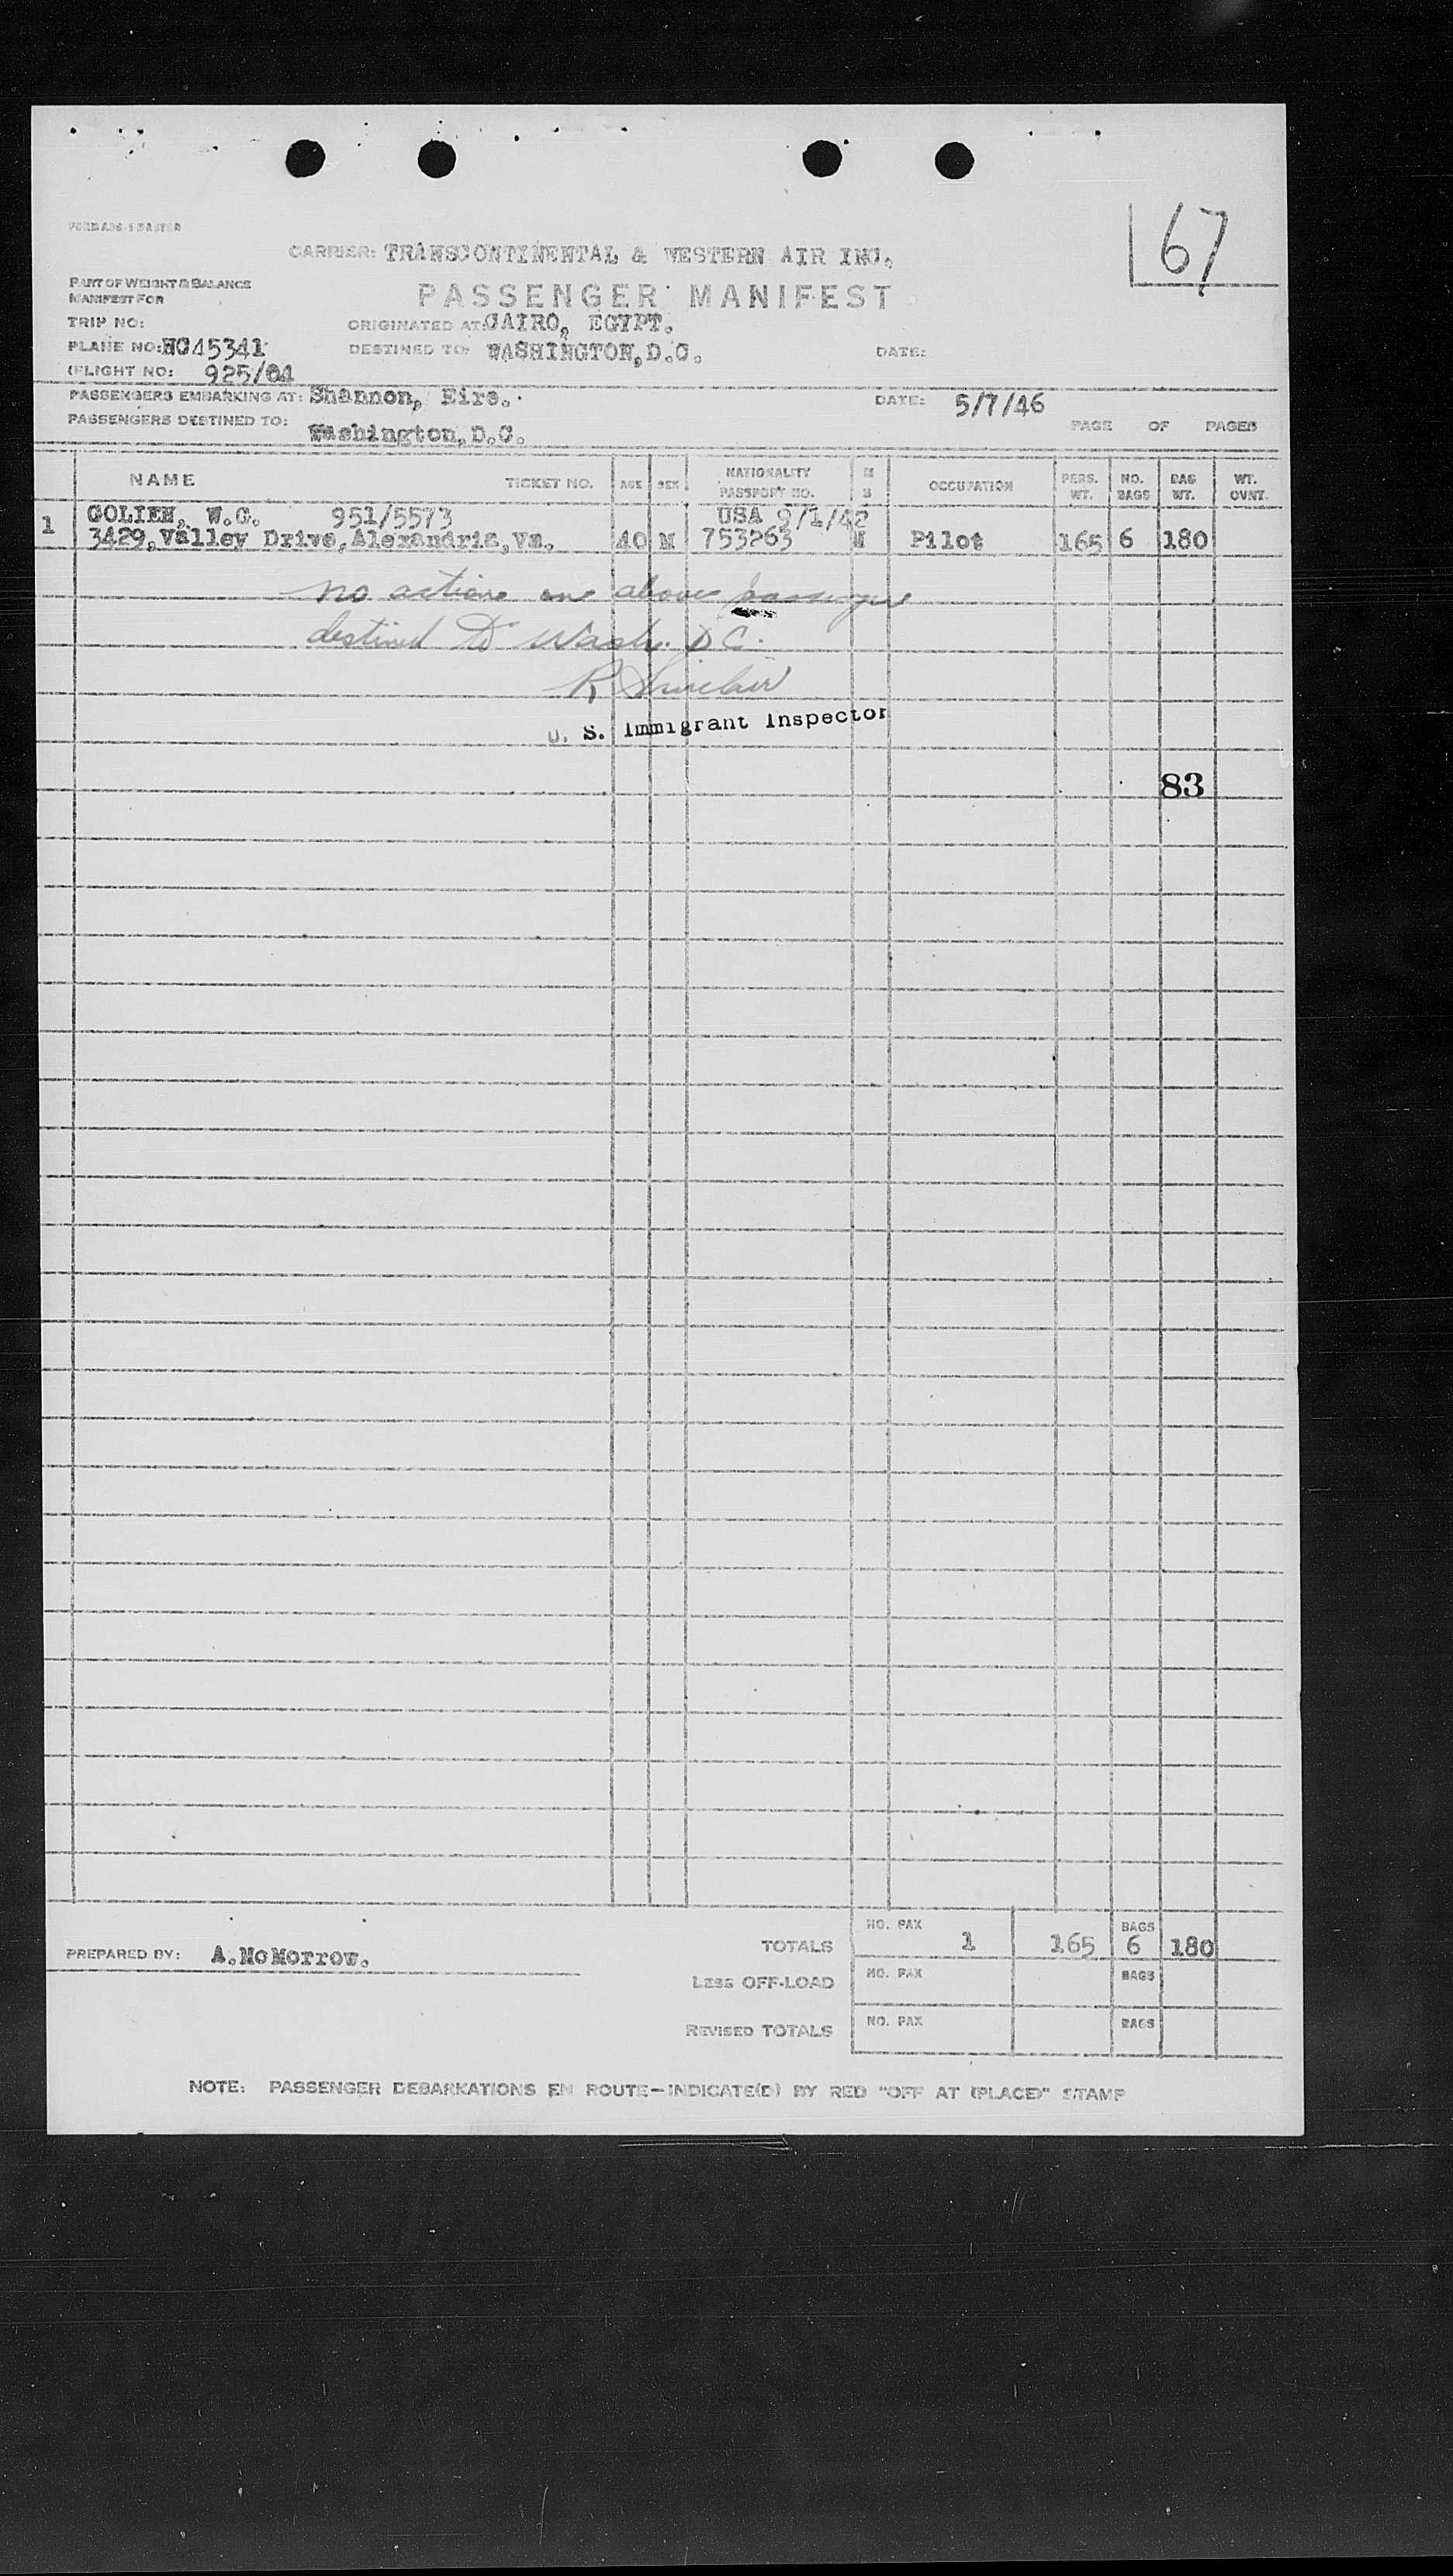 FORM A98-1 MASTER
67
CARRIER: TRANSCONTINENTAL & WESTERN AIR INC.
PART OF WEIGHT & BALANCE
MANIFEST FOR
PASSENGER MANIFEST
TRIP NO:
ORIGINATED AT: CAIRO, EGYPT.
PLANE NO: NC45341
DESTINED TO: WASHINGTON, D.C.
DATE:
(FLIGHT NO: 925/04
PASSENGERS EMBARKING AT: Shannon, Eire.
DATE: 5/7/46
PASSENGERS DESTINED TO: Washington, D.C.
PAGE OF PAGES
NAME TICKET NO. AGE SEX NATIONALITY PASSPORT NO. M S OCCUPATION PERS. WT. NO. BAGS BAG WT. WT. OVNT.
GOLIEN, W.C. 951/5573 USA 9/1/42
1 3429, Valley Drive, Alexandria, Va. 40 M 753263 M Pilot 165 6 180
no action on above passenger
destined to Wash. D C.
R Sinclair
U. S. Immigrant Inspector
83
NO. PAX BAGS
PREPARED BY: A.McMorrow. TOTALS 1 165 6 180
LESS OFF-LOAD NO. PAX BAGS
REVISED TOTALS NO. PAX BAGS
NOTE: PASSENGER DEBARKATIONS EN ROUTE-INDICATE(D) BY RED "OFF AT (PLACE)" STAMP